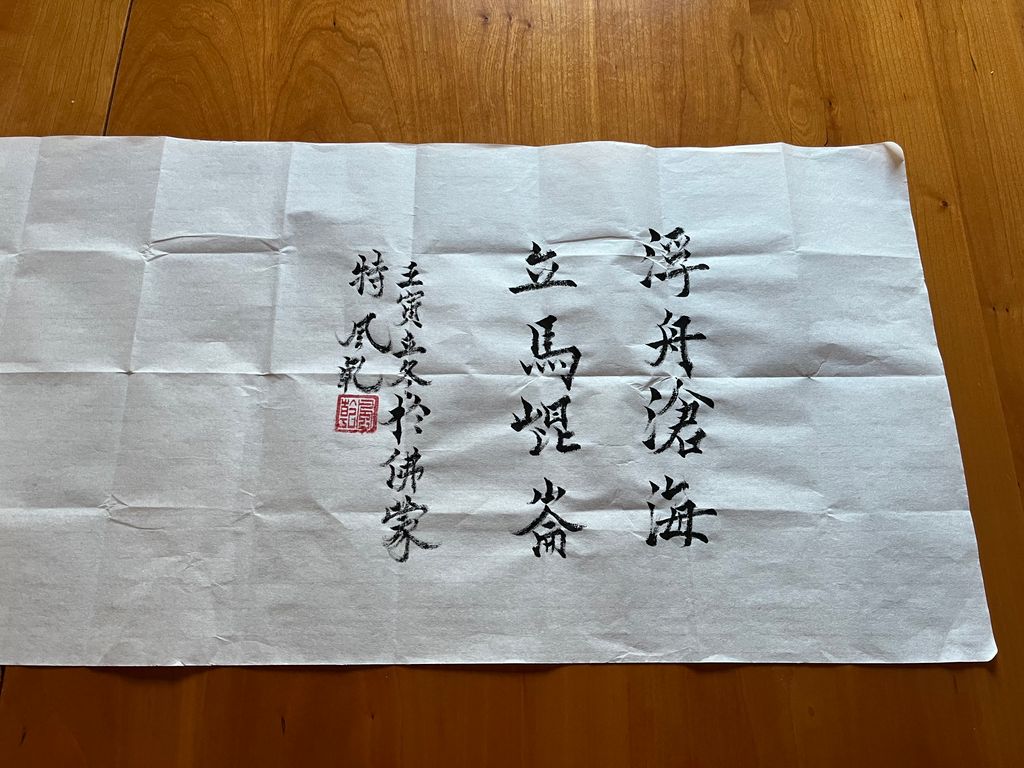 浮舟滄海
立馬崐崙
壬寅立冬於佛蒙
特 風乾